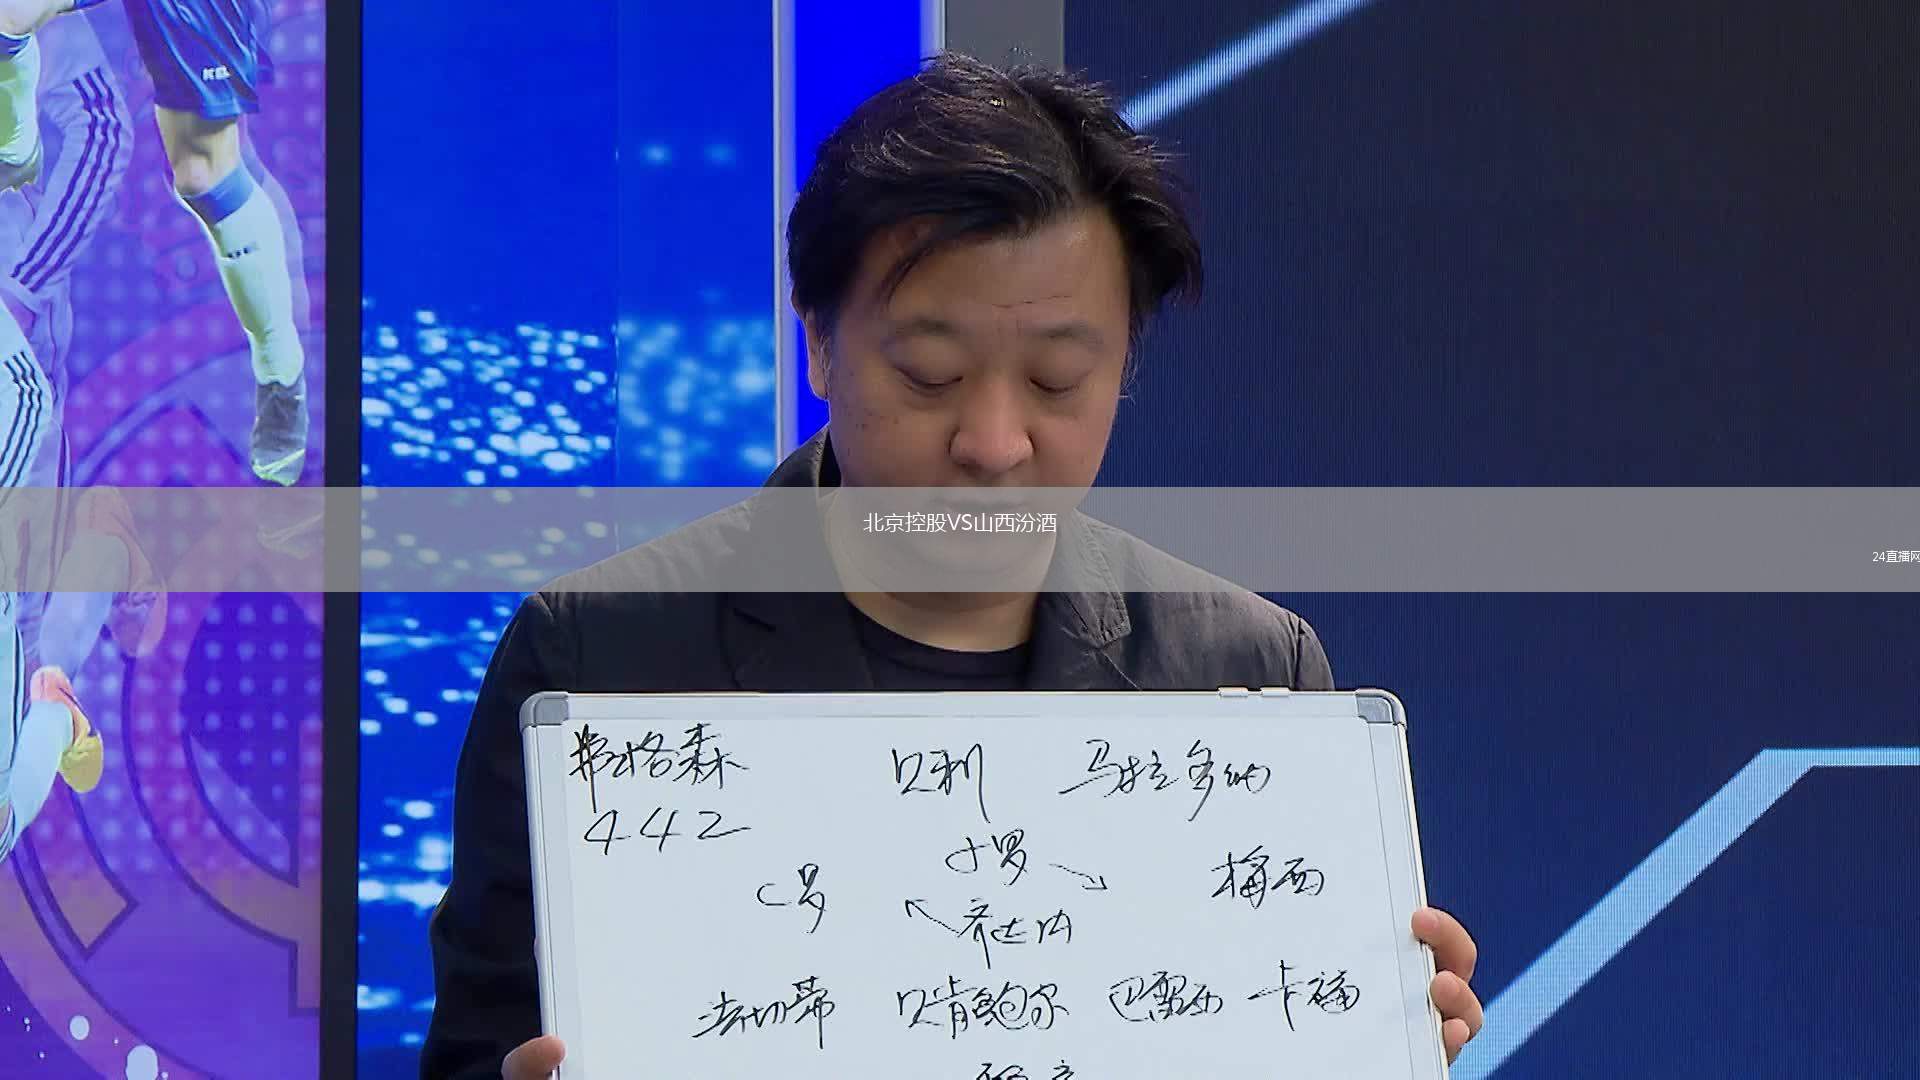 北京控股VS山西汾酒
24直播网
弗格森 贝利 马拉多纳
442
大罗
C罗 梅西
齐达内
法切蒂 贝肯鲍尔 巴雷西 卡福